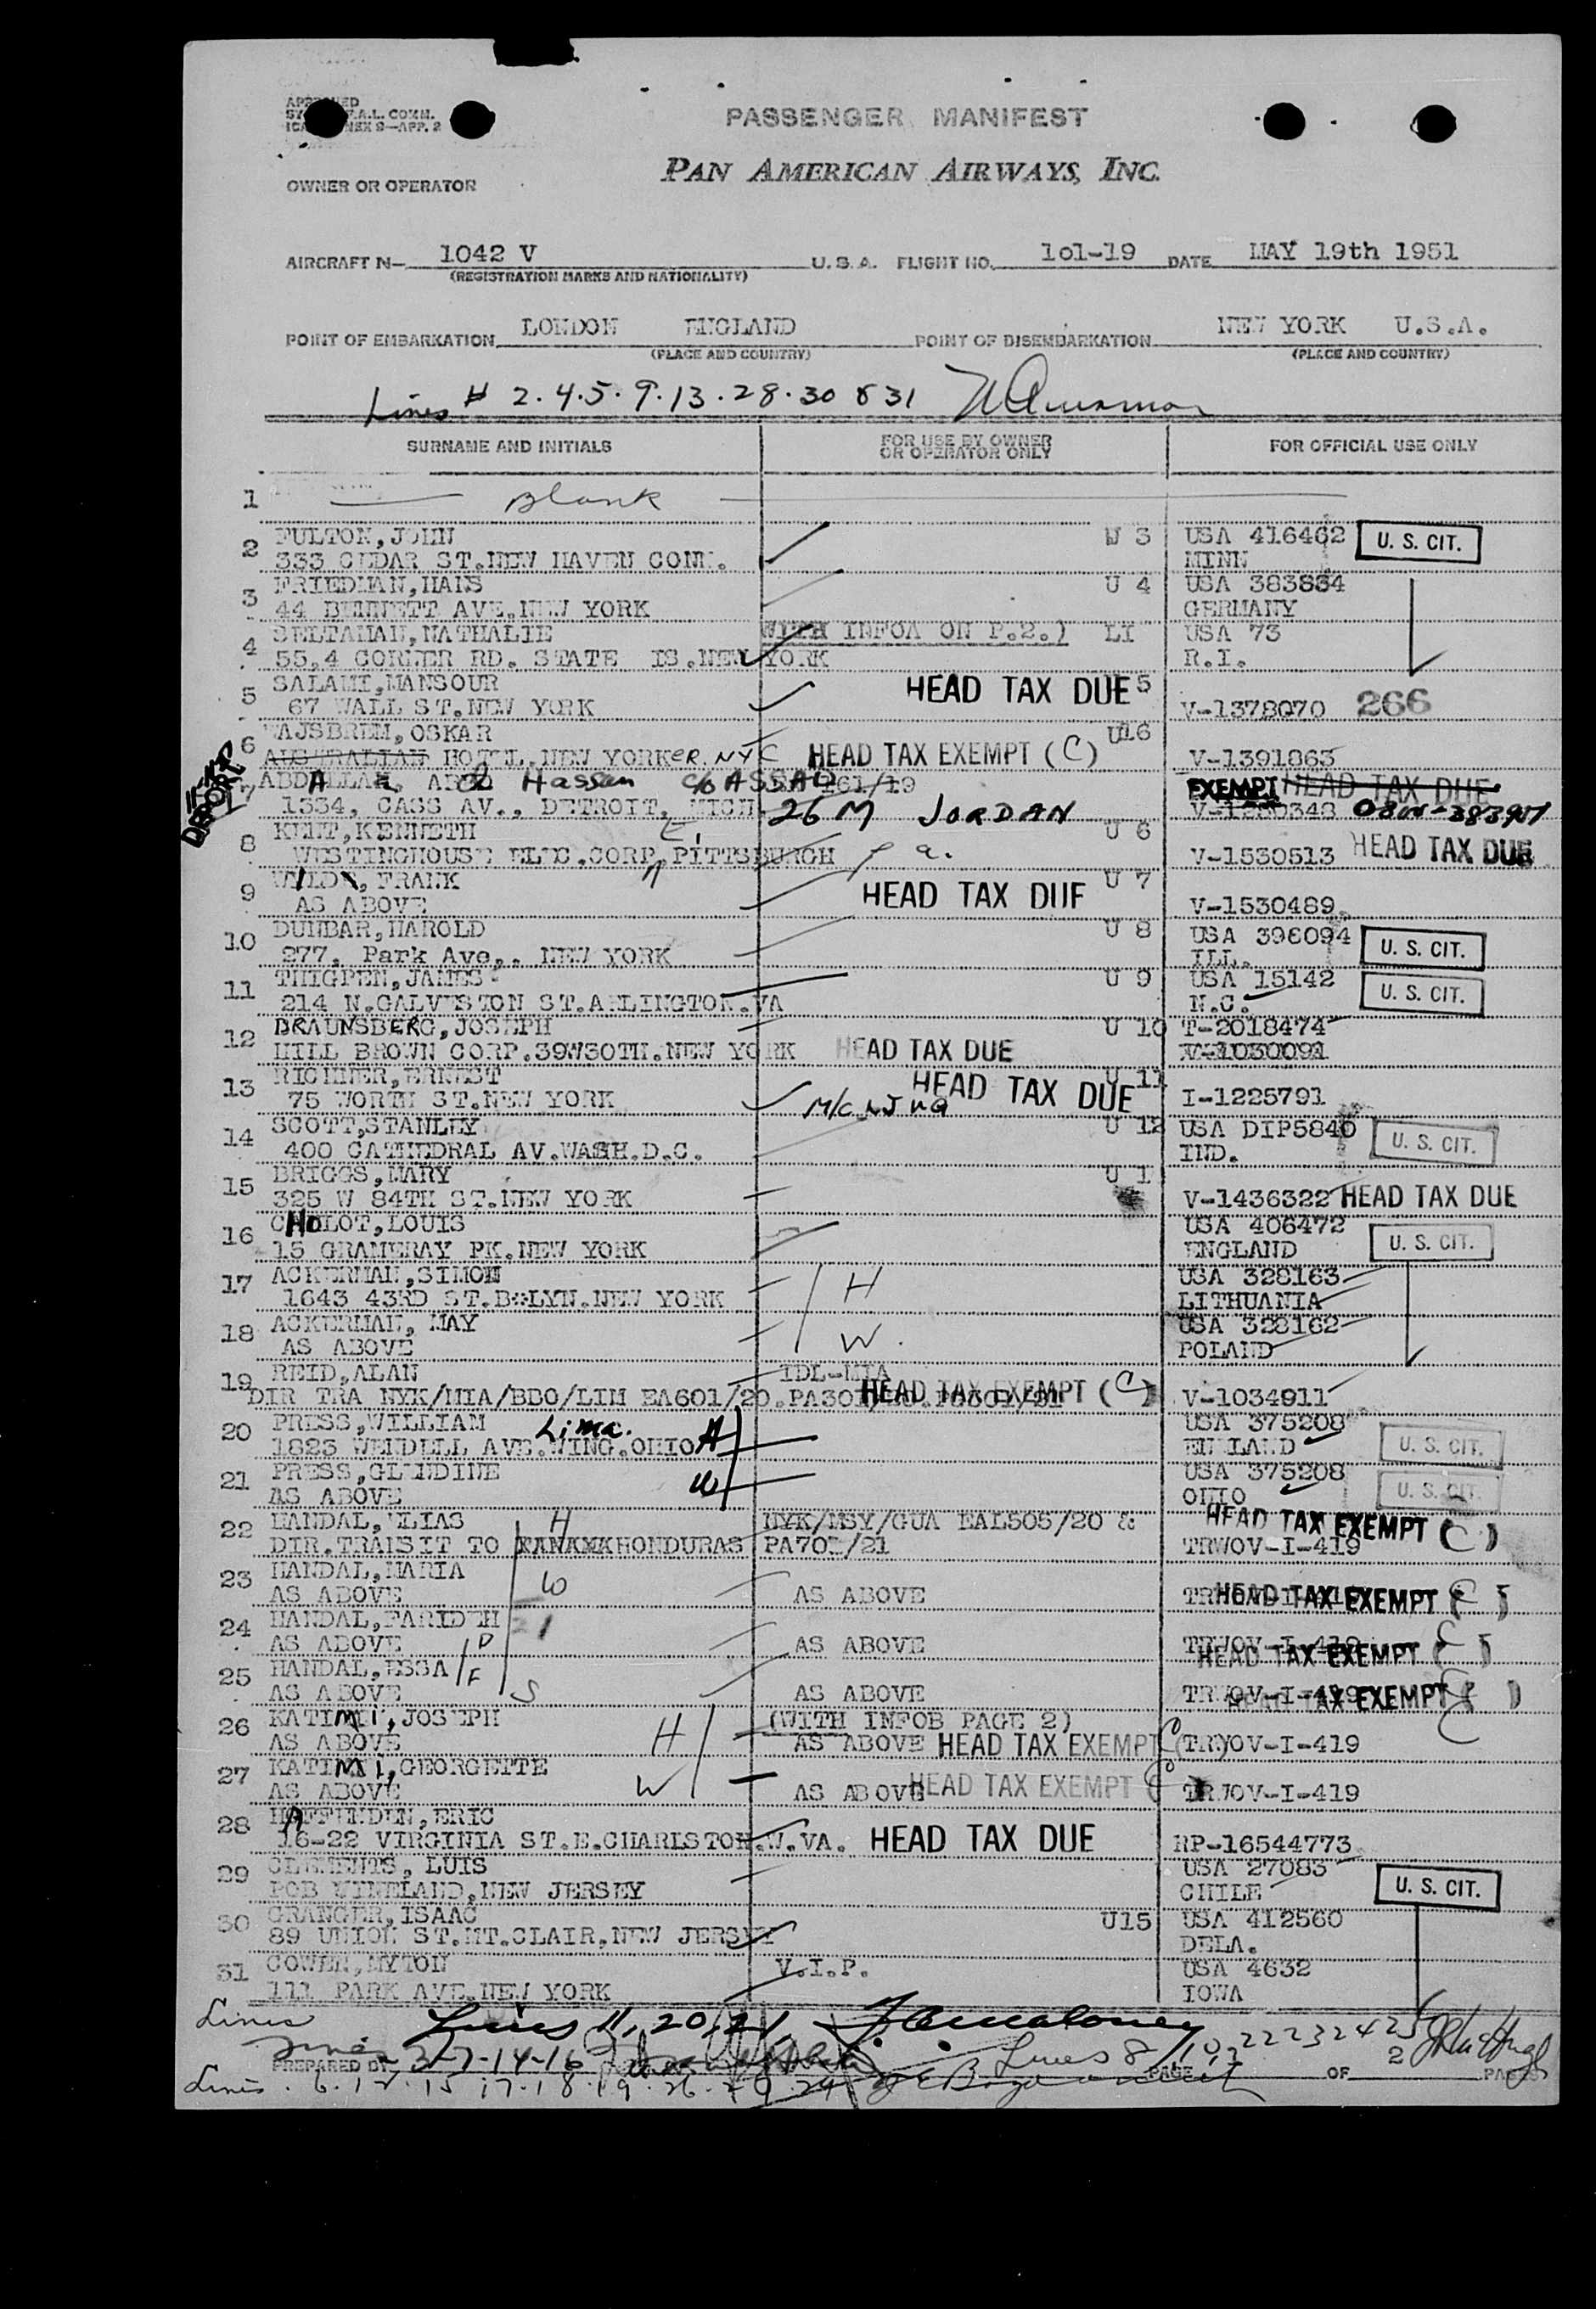 PASSENGER MANIFEST
PAN AMERICAN AIRWAYS, INC.
OWNER OR OPERATOR
AIRCRAFT N- 1042 V U.S.A. FLIGHT NO. 1o1-19 DATE MAY 19th 1951
(REGISTRATION MARKS AND NATIONALITY)
POINT OF EMBARKATION LONDON ENGLAND POINT OF DISEMBARKATION NEW YORK U.S.A.
(PLACE AND COUNTRY) (PLACE AND COUNTRY)
Lines # 2.4.5.9.13.28.30 & 31
SURNAME AND INITIALS FOR USE BY OWNER OR OPERATOR ONLY FOR OFFICIAL USE ONLY
1 Blank
2 FULTON,JOHN U 3 USA 416462 U. S. CIT.
333 CEDAR ST.NEW HAVEN CONN. MINN
3 FRIEDMAN,HANS U 4 USA 383834
44 BENNETT AVE.NEW YORK GERMANY
4 SELTAMAN,NATHALIE WITH INFOA ON P.2.) LI USA 73
55.4 CORNER RD. STATE IS.NEW YORK R.I.
5 SALAMI,MANSOUR HEAD TAX DUE 5
67 WALL ST.NEW YORK V-1378070 266
6 WAJSBREM,OSKAR U16
AUSTRALIAN HOTEL.NEW YORKER. NYC HEAD TAX EXEMPT (C) V-1391863
DEPORT
7 Hassan c/o ASSAD 261/19 EXEMPT HEAD TAX DUE
1334, CASS AV., DETROIT, MICH 26 M JORDAN
8 KENT,KENNETH E, U 6
WESTINGHOUSE ELEC.CORP,PITTSBURGH Pa. V-1530513 HEAD TAX DUE
9 FRANK HEAD TAX DUE U 7
AS ABOVE V-1530489
10 DUNBAR,HAROLD U 8 USA 396094 U. S. CIT.
277, Park Ave,. NEW YORK ILL.
11 THIGPEN,JAMES U 9 USA 15142 U. S. CIT.
214 N.GALVESTON ST.ARLINGTON.VA N.C.
12 BRAUNSBERG,JOSEPH U 10 T-2018474
HILL BROWN CORP.39W30TH.NEW YORK HEAD TAX DUE V-1030091
13 RICHNER,ERNEST U 11 HEAD TAX DUE
75 WORTH ST.NEW YORK I-1225791
14 SCOTT,STANLEY U 12 USA DIP5840 U. S. CIT.
400 CATHEDRAL AV.WASH.D.C. IND.
15 BRIGGS,MARY U 1
325 W 84TH ST.NEW YORK V-1436322 HEAD TAX DUE
16 CHOLOT,LOUIS USA 406472 U. S. CIT.
15 GRAMERAY PK.NEW YORK ENGLAND
17 ACKERMAN,SIMON H USA 328163
1643 43RD ST.B LYN.NEW YORK LITHUANIA
18 ACKERMAN, MAY W. USA 328162
AS ABOVE POLAND
19 REID,ALAN IDL-MIA
DIR TRA NYK/MIA/BBO/LIM EA601/20.PA301 HEAD TAX EXEMPT (C) V-1034911
20 PRESS,WILLIAM Lima. USA 375208
1823 WENDELL AVE.WING.OHIO H ENGLAND U. S. CIT.
21 PRESS,GLENDINE W USA 375208
AS ABOVE OHIO U. S. CIT.
22 HANDAL,ELIAS H NYK/MSY/GUA EAL505/20 & HEAD TAX EXEMPT (C)
DIR.TRANSIT TO HONDURAS PA701/21 TRWOV-I-419
23 HANDAL,MARIA W
AS ABOVE AS ABOVE HEAD TAX EXEMPT (C)
24 HANDAL,FARIDEH
AS ABOVE D AS ABOVE TRWOV-I-419 HEAD TAX EXEMPT (C)
25 HANDAL,ESSA F
AS ABOVE S AS ABOVE TRWOV-I-419 HEAD TAX EXEMPT (C)
26 KATIMI,JOSEPH H (WITH INFOB PAGE 2)
AS ABOVE AS ABOVE HEAD TAX EXEMPT (C) TRWOV-I-419
27 KATIMI,GEORGETTE W
AS ABOVE AS ABOVE HEAD TAX EXEMPT (C) TRWOV-I-419
28 HAFFENDEN,ERIC
16-22 VIRGINIA ST.E.CHARLSTON.W.VA. HEAD TAX DUE RP-16544773
29 CLEMENTS, LUIS USA 27083
POB VINELAND,NEW JERSEY CHILE U. S. CIT.
30 GRANGER,ISAAC U15 USA 412560
89 UNION ST.MT.CLAIR,NEW JERSEY DELA.
31 COWEN,MYTON V.I.P. USA 4632
111 PARK AVE.NEW YORK IOWA
Lines Lines 11, 20, 21,
PREPARED BY 3-7-14-16 Lines 8, 10, 22 23 24 25
PAGE OF 2 PAGES
Lines 6. 12. 15 17. 18. 19. 26. 27. 29